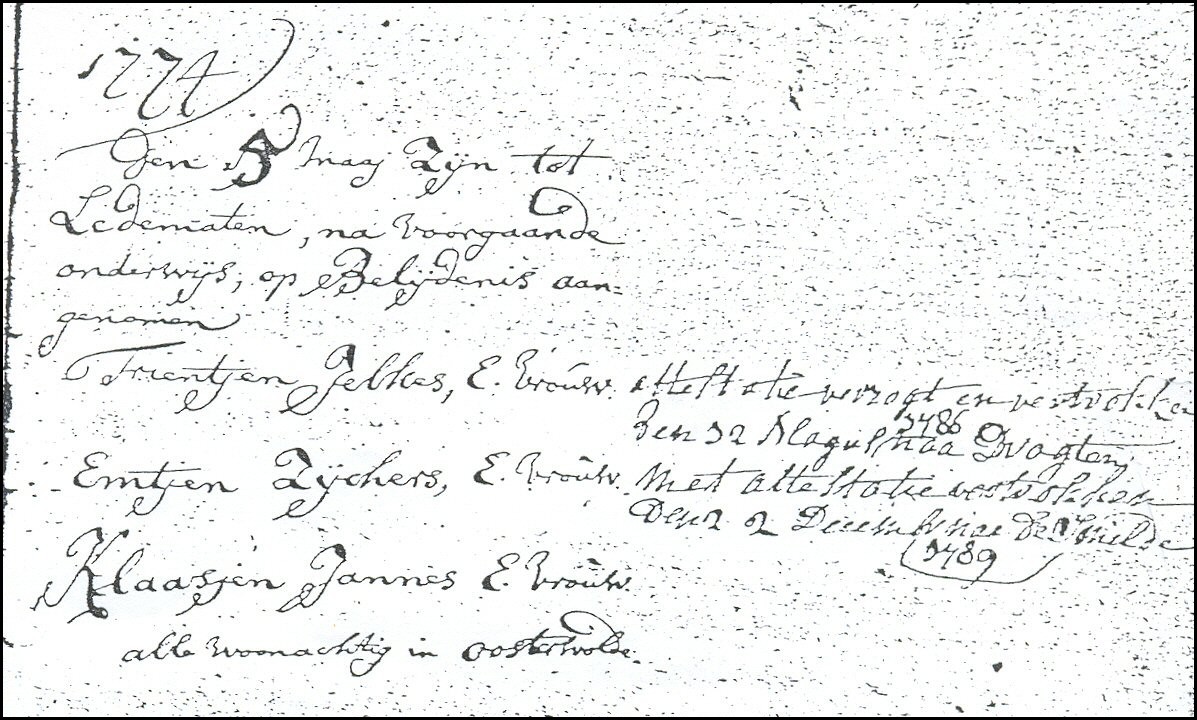 1774
Den 5 Maaj Zijn tot
Ledematen, na voorgaande
onderwijs, op Belijdenis aan=
genomen
Trientjen Jelkes, E. vrouw. attestatie verzogt en vertrokken
den 12 1786 naa Dragten
Emtjen Zijchers, E. vrouw. Met attestatie vertrokken
Den 2 Decemb nae De Smilde
1789
Klaasjen Jannes E. vrouw.
alle woonachtig in oosterwolde.